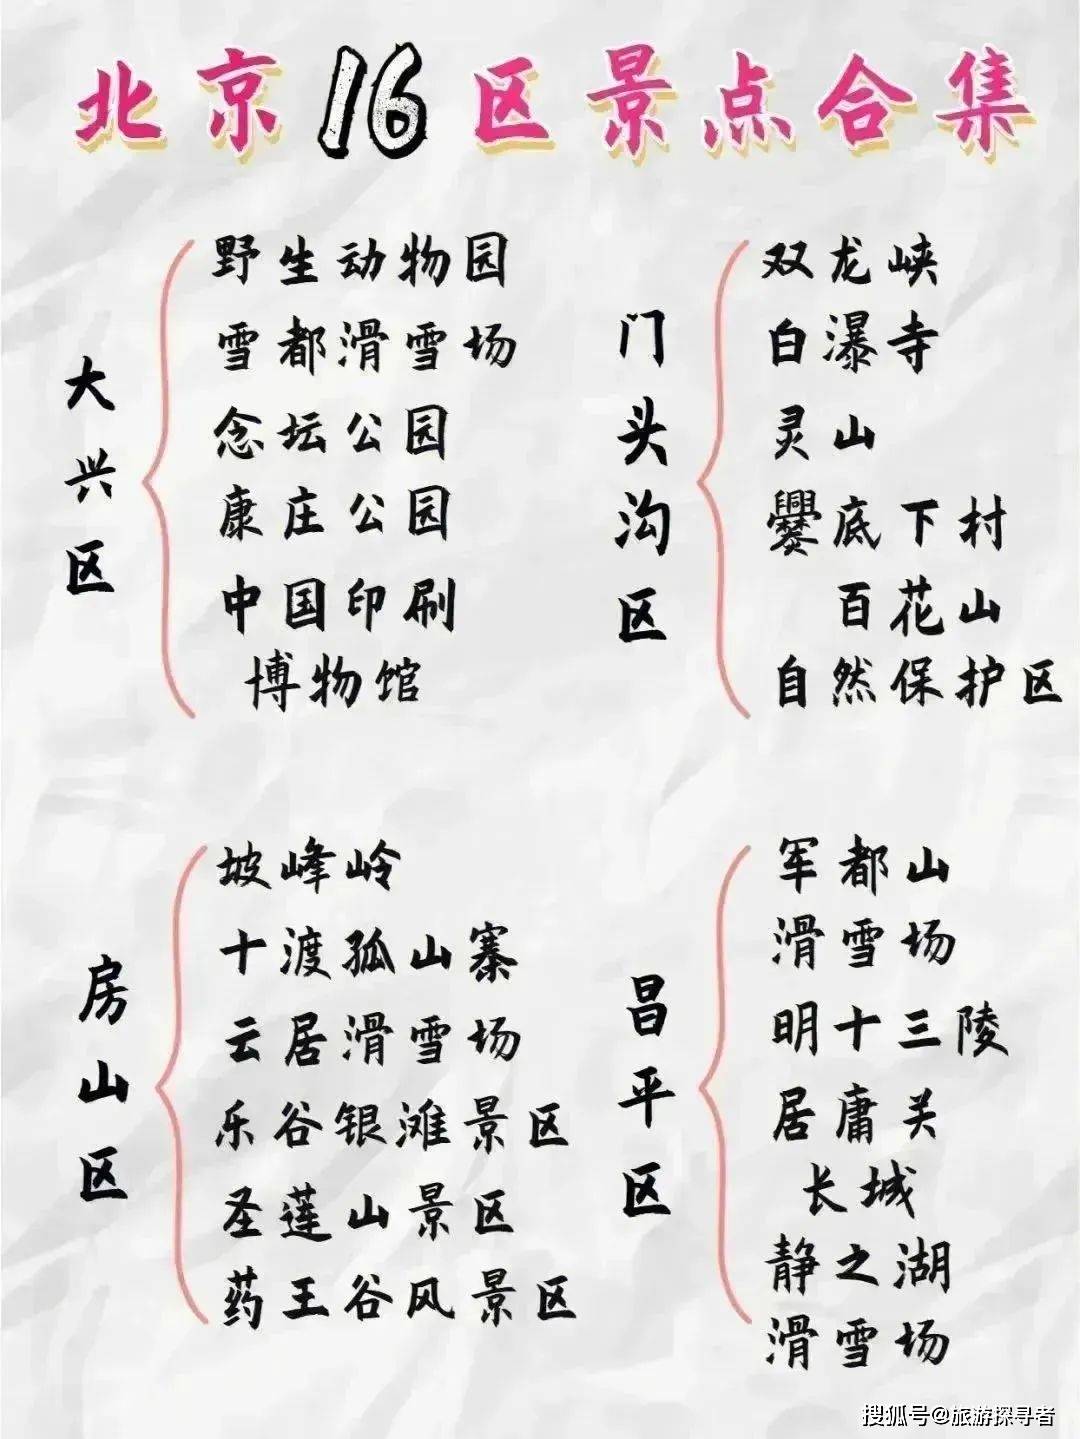 北京16区景点合集
大兴区
野生动物园
雪都滑雪场
念坛公园
康庄公园
中国印刷
博物馆
门头沟区
双龙峡
白瀑寺
灵山
爨底下村
百花山
自然保护区
房山区
坡峰岭
十渡孤山寨
云居滑雪场
乐谷银滩景区
圣莲山景区
药王谷风景区
昌平区
军都山
滑雪场
明十三陵
居庸关
长城
静之湖
滑雪场
搜狐号@旅游探寻者